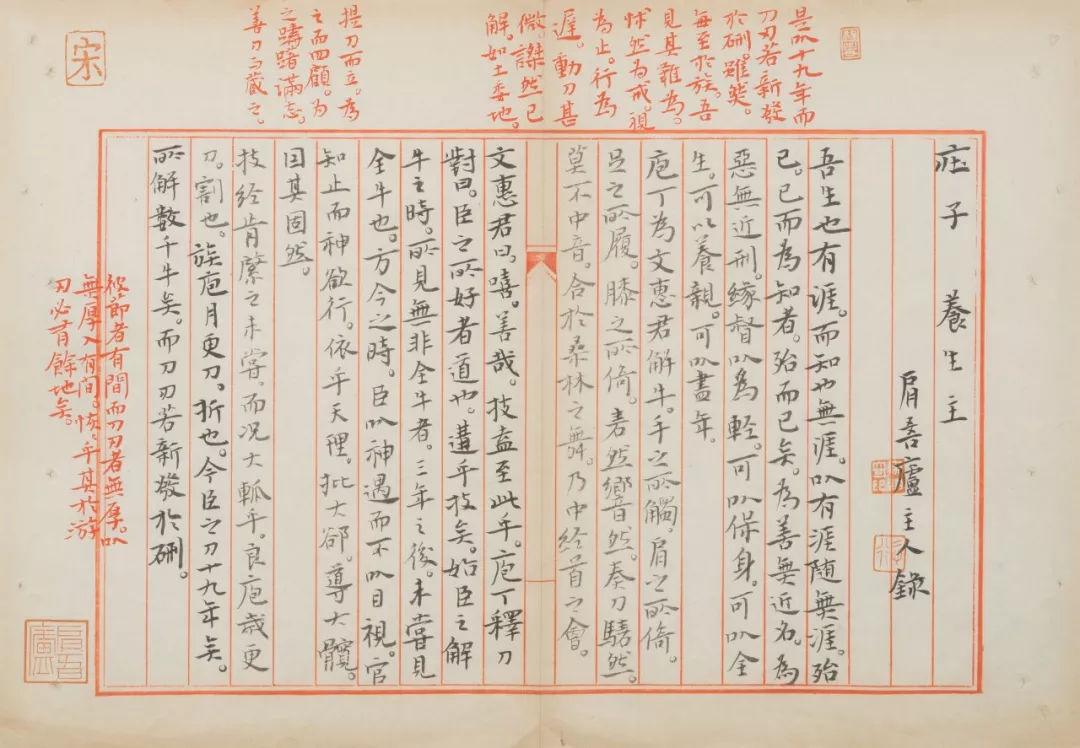 庄子 養生主
肩吾廬主人錄
吾生也有涯。而知也無涯。㠯有涯随無涯。殆
已。已而為知者。殆而已矣。為善無近名。為
惡無近刑。緣督㠯為軽。可㠯保身。可㠯全
生。可以養親。可㠯盡年。
庖丁為文惠君解牛。手之所觸。肩之所倚。
足之所履。膝之所倚。砉然響然。奏刀騞然。
莫不中音。合於桑林之舞。乃中经首之會。
文惠君曰。嘻。善哉。技盍至此乎。庖丁釋刀
對曰。臣之所好者道也。進乎技矣。始臣之解
牛之時。所見無非全牛者。三年之後。未嘗見
全牛也。方今之時。臣㠯神遇而不㠯目視。官
知止而神欲行。依乎天理。批大郤。導大髖。
因其固然。
技经肯綮之未嘗。而况大軱乎。良庖歲更
刀。割也。族庖月更刀。折也。今臣之刀十九年矣。
所解數千牛矣。而刀刃若新發於硎。
彼節者有間而刀刃者無厚。㠯
無厚入有间。恢〻乎其於游
刃必有餘地矣。
是㠯十九年而
刀刃若新發
於硎。雖然。
每至於族。吾
見其難為。
怵然為戒。視
為止。行為
遲。動刀甚
微。謋然已
解。如土委地。
提刀而立。為
之而四顧。为
之躊躇滿志。
善刀而藏之。
宋
肩吾廬